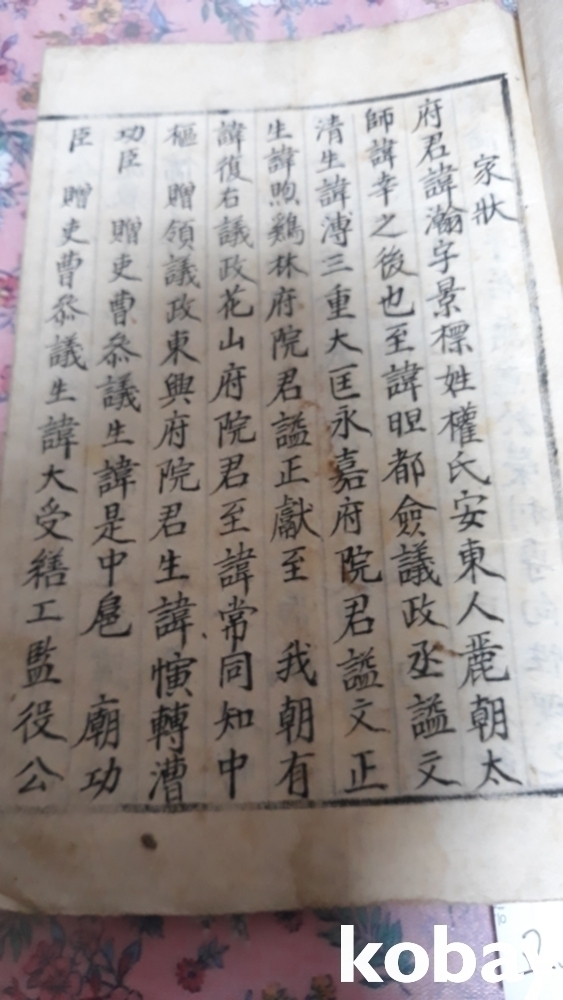 家狀
府君諱瀚字景標姓權氏安東人麗朝太
師諱幸之後也至諱㫜都僉議政丞諡文
清生諱溥三重大匡永嘉府院君諡文正
生諱煦鷄林府院君諡正獻至 我朝有
諱復右議政花山府院君至諱常同知中
樞 贈領議政東興府院君生諱愩轉漕
功臣 贈吏曹叅議生諱是中扈 廟功
臣 贈吏曹叅議生諱大受繕工監役公
koba